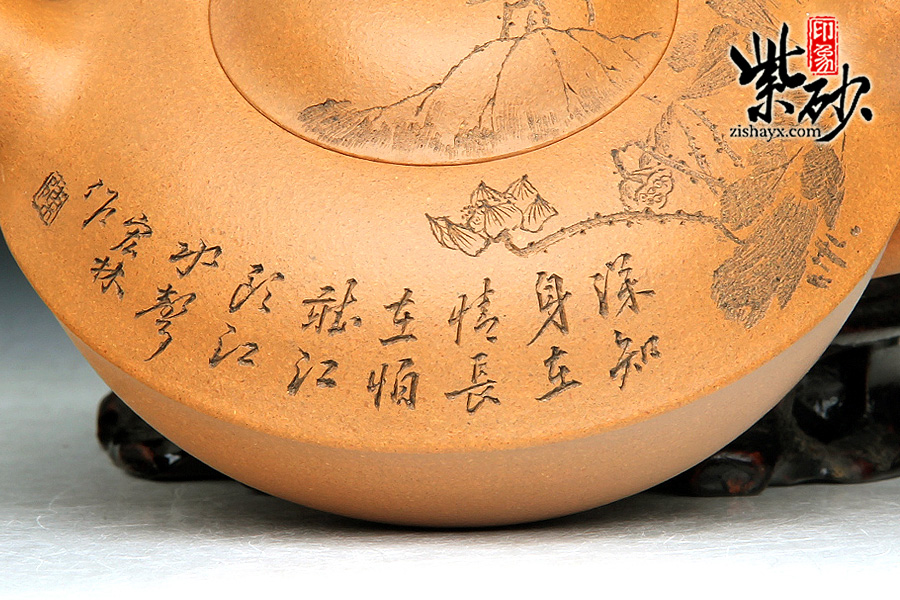 深知
身在
情長
在悵
望江
頭江
水聲
宏林
作
紫砂
印象
zishayx.com